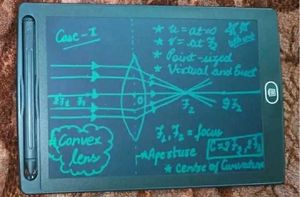 Case-I
* u = at ∞
* v = at F₂
* Point-sized
* Virtual and Erect
2F₁ F₁ O F₂ 2F₂
Convex
lens
F₁, F₂ = focus
*Aperture
C = 2F₁, 2F₂
* centre of Curvature